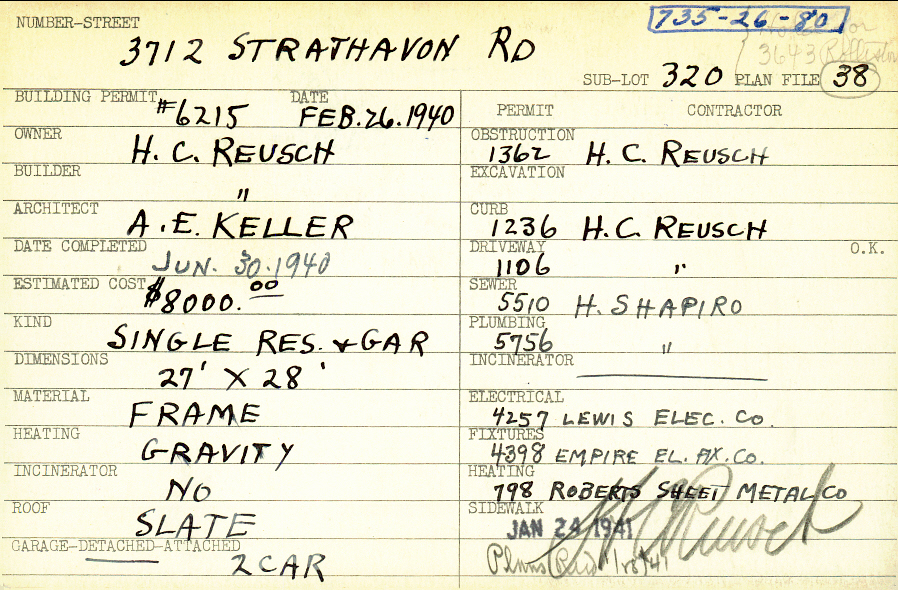 NUMBER-STREET
735-26-80
3712 STRATHAVON RD
3643 Rolliston
SUB-LOT 320 PLAN FILE 38
BUILDING PERMIT #6215 DATE FEB. 26. 1940
OWNER H. C. REUSCH
BUILDER "
ARCHITECT A. E. KELLER
DATE COMPLETED JUN. 30. 1940
ESTIMATED COST $8000.00
KIND SINGLE RES. & GAR
DIMENSIONS 27' X 28'
MATERIAL FRAME
HEATING GRAVITY
INCINERATOR NO
ROOF SLATE
GARAGE-DETACHED-ATTACHED 2 CAR
PERMIT CONTRACTOR
OBSTRUCTION 1362 H. C. REUSCH
EXCAVATION
CURB 1236 H. C. REUSCH
DRIVEWAY 1106 " O.K.
SEWER 5510 H. SHAPIRO
PLUMBING 5756 "
INCINERATOR
ELECTRICAL 4257 LEWIS ELEC. CO.
FIXTURES 4398 EMPIRE EL. FIX. CO.
HEATING 798 ROBERTS SHEET METAL CO
SIDEWALK JAN 24 1941
H C Reusch
Plans